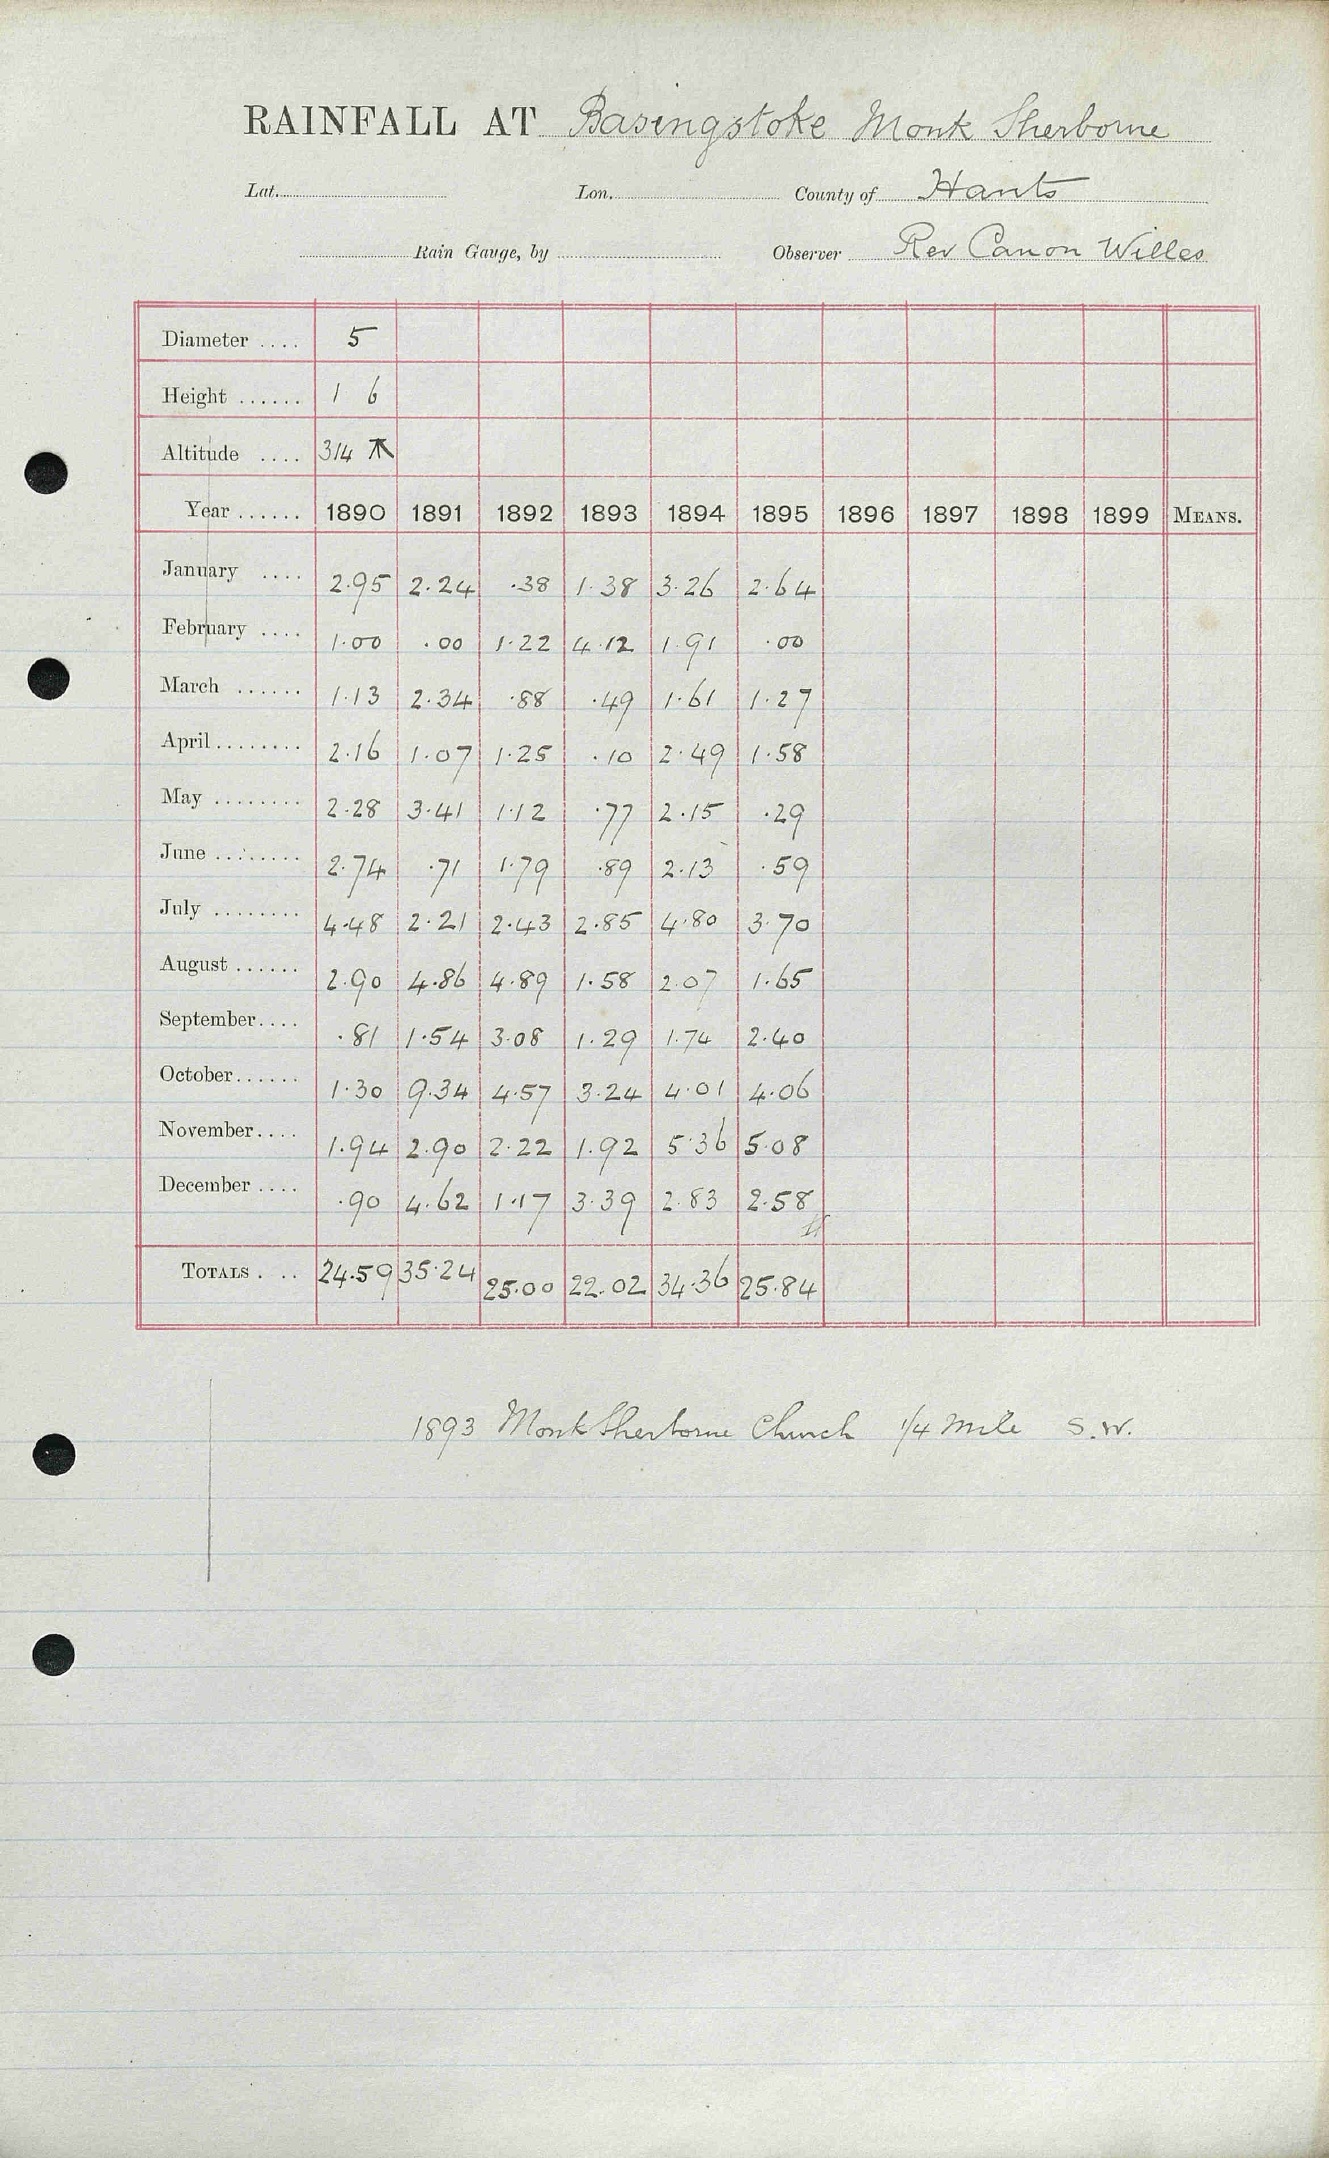 RAINFALL AT Basingstoke Monk Sherborne
Lat. Lon. County of Hants
Rain Gauge, by Observer Rev Canon Willes
Diameter .... 5
Height ...... 1 6
Altitude .... 314 ⊼
Year ...... 1890 1891 1892 1893 1894 1895 1896 1897 1898 1899 MEANS.
January .... 2.95 2.24 .38 1.38 3.26 2.64
February .... 1.00 .00 1.22 4.12 1.91 .00
March ...... 1.13 2.34 .88 .49 1.61 1.27
April ........ 2.16 1.07 1.25 .10 2.49 1.58
May ........ 2.28 3.41 1.12 .77 2.15 .29
June ........ 2.74 .71 1.79 .89 2.13 .59
July ........ 4.48 2.21 2.43 2.85 4.80 3.70
August ...... 2.90 4.86 4.89 1.58 2.07 1.65
September .... .81 1.54 3.08 1.29 1.74 2.40
October ...... 1.30 9.34 4.57 3.24 4.01 4.06
November .... 1.94 2.90 2.22 1.92 5.36 5.08
December .... .90 4.62 1.17 3.39 2.83 2.58
TOTALS . .. 24.59 35.24 25.00 22.02 34.36 25.84
1893 Monk Sherborne Church 1/4 mile S.W.